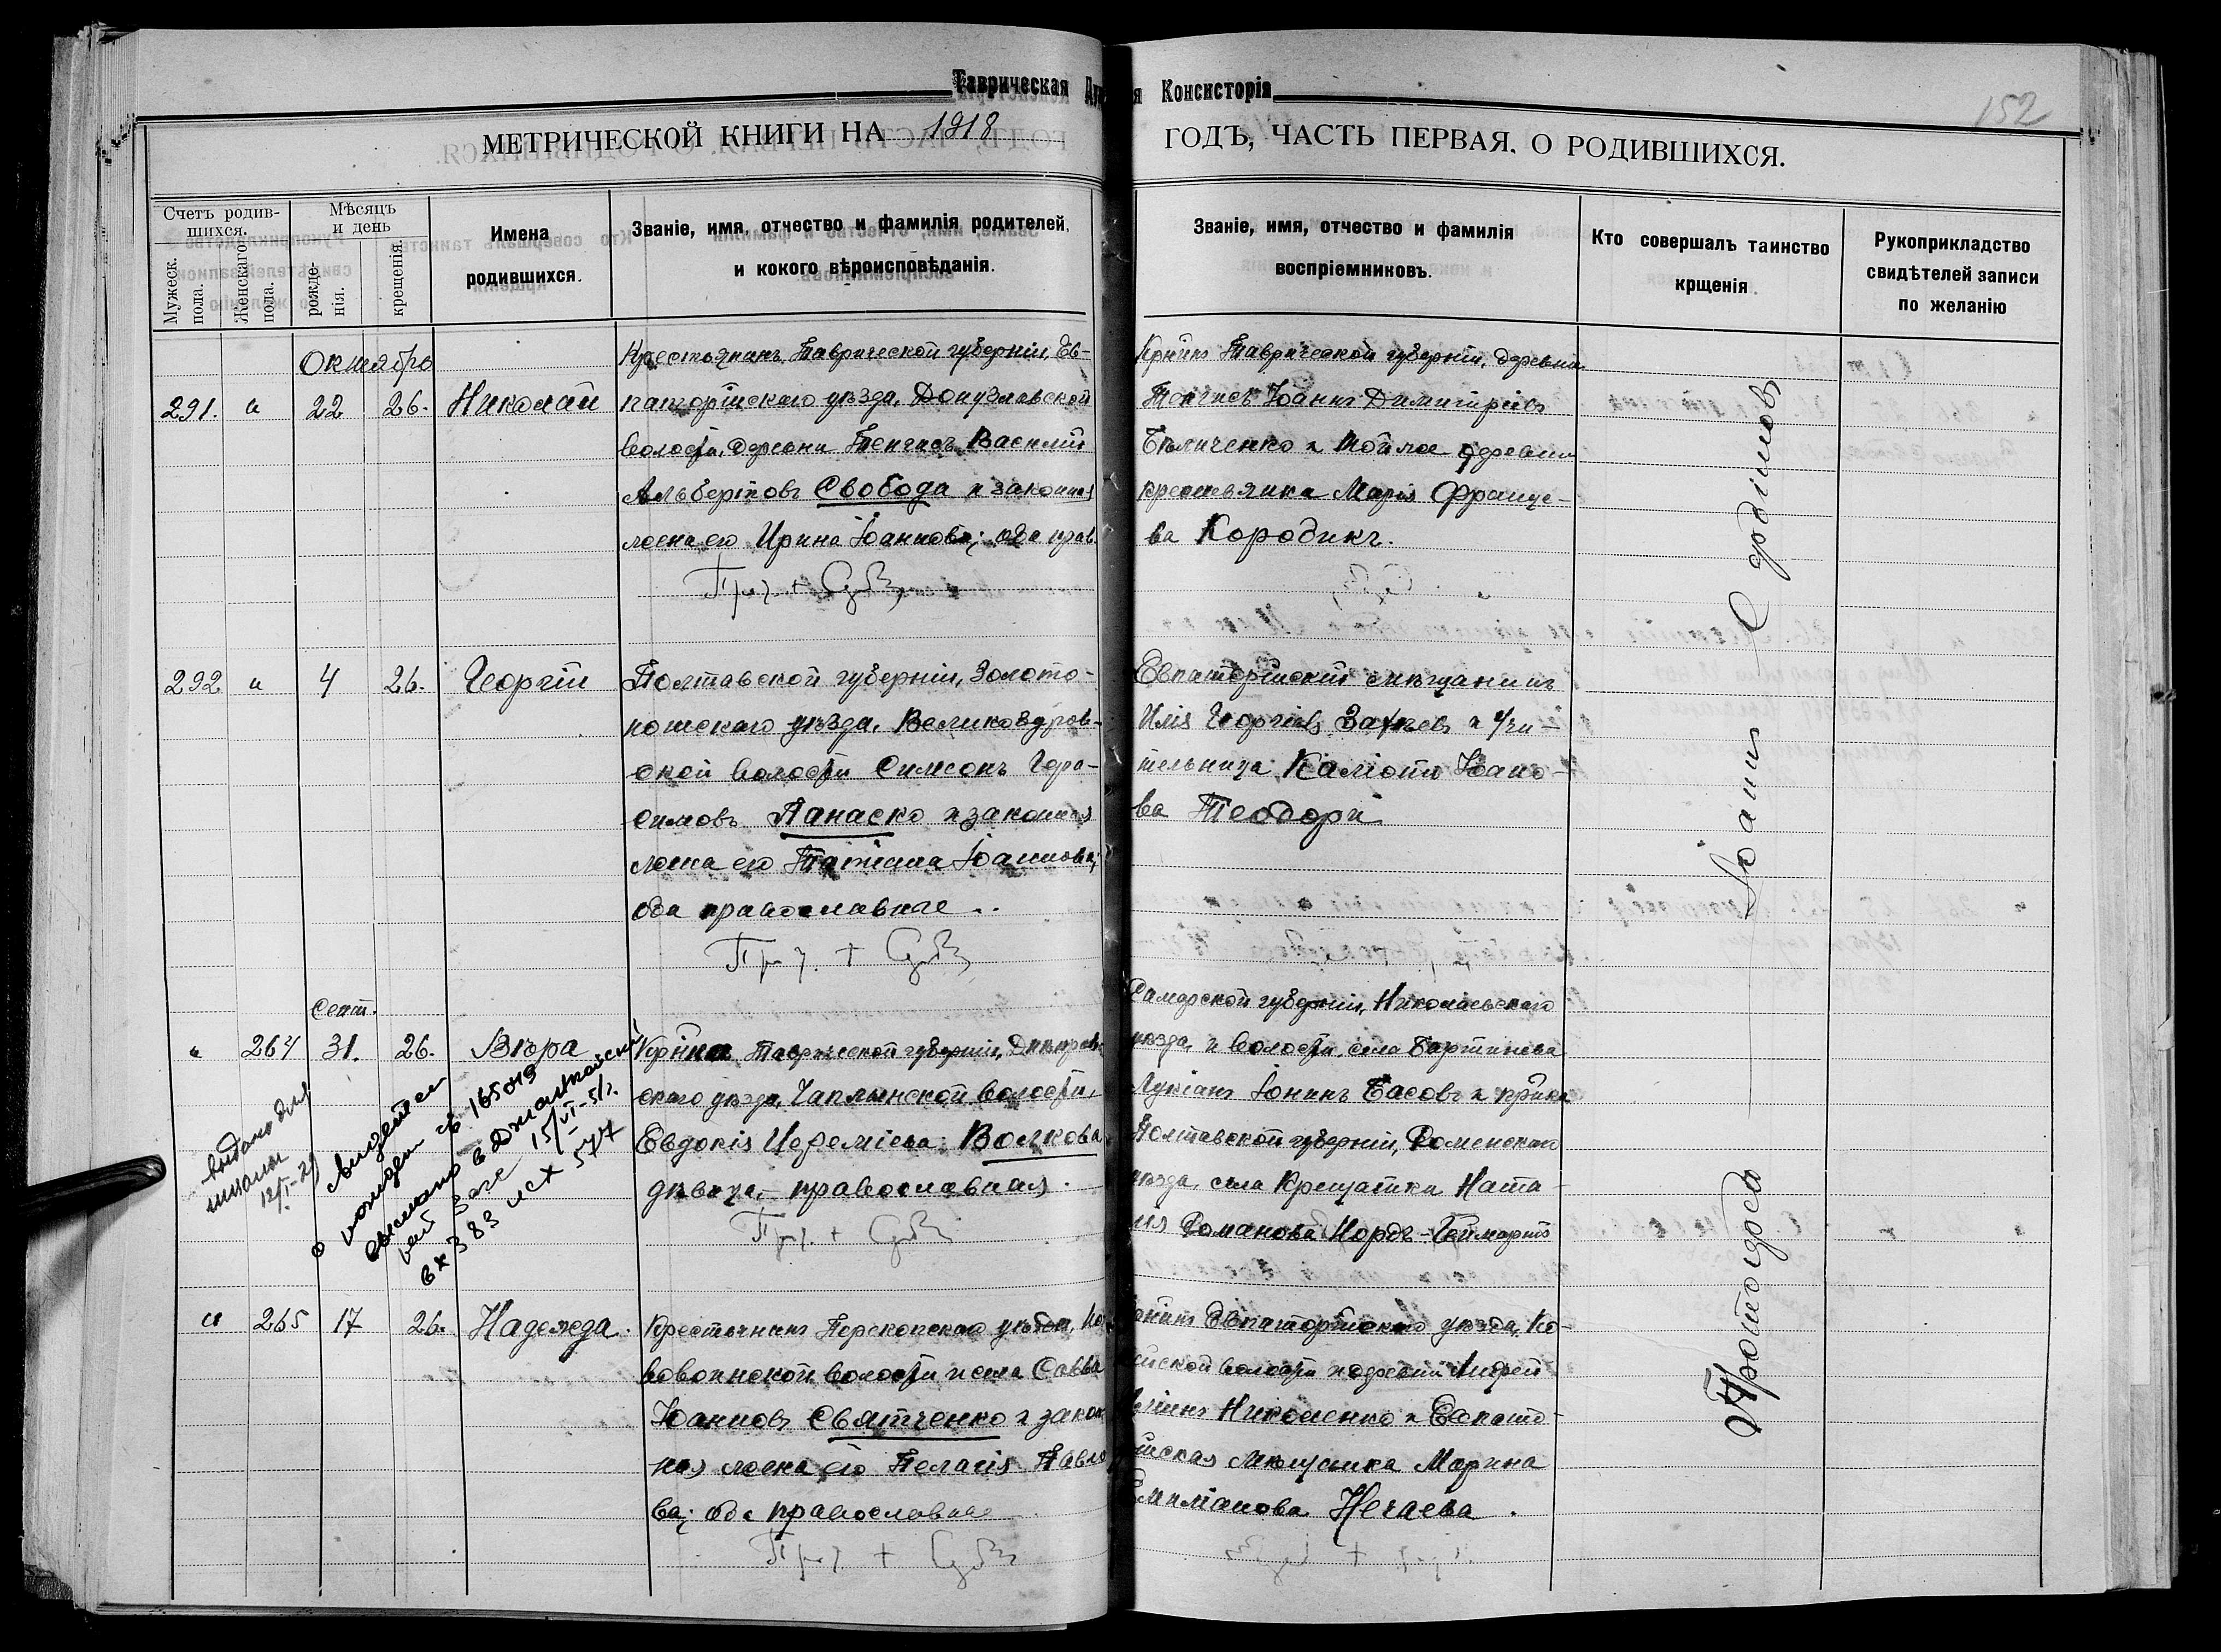 Таврическая Ду
я Консисторія
152
МЕТРИЧЕСКОЙ КНИГИ НА 1918
ГОДЪ, ЧАСТЬ ПЕРВАЯ, О РОДИВШИХСЯ.
Счетъ родив-
шихся.
Мужеск. пола.
Женскаго пола.
Мѣсяцъ
и день
рожде-
нія.
крещенія.
Имена
родившихся.
Званіе, имя, отчество и фамилія родителей,
и кокого вѣроисповѣданія.
Званіе, имя, отчество и фамилія
воспріемниковъ.
Кто совершалъ таинство
крщенія
Рукоприкладство
свидѣтелей записи
по желанію
Октябрь
291. " 22 26. Николай
Крестьянинъ Таврической губерніи, Ев-
паторійскаго уѣзда, Донузлавской
волости, деревни Тенгисъ Василій
Альбертовъ Свобода и законная
жена его Ирина Іоаннова; оба прав.
Крнинъ Таврической губерніи, деревни
Тенгисъ Іоаннъ Димитріевъ
Бѣличенко и той же деревни
крестьянка Марія Францо-
ва Кородикъ.
292 " 4 26. Георгій
Полтавской губерніи, Золото-
ношскаго уѣзда,
ской волости Симеонъ Гера-
симовъ Панаско и законная
жена его Татіана Іоаннова;
оба православные.
Евпаторійскій мѣщанинъ
Илія Георгіевъ и учи-
тельница Іоано-
ва Теодори
Сент.
" 264 31. 26. Вѣра
Крнка Таврической губерніи, Днѣпров-
скаго уѣзда, Чаплынской волости,
Евдокія Іереміева Волкова
дѣвица, православная.
Самарской губерніи, Николаевскаго
уѣзда, и волости, села
Лукіанъ Іонинъ Басовъ и крнка
Полтавской губерніи, Роменскаго
уѣзда, села Крещатика Ната-
лія Романова Нордъ-
выдано для
школы
12/I-29
о рожден
165049
выслано в Джанкойский
рай Загс 15/VI-51г.
вх 383 исх 577
" 265 17 26. Надежда.
Крестьянинъ Перекопскаго уѣзда, Но-
вовоинской волости и села Савва
Іоанновъ Святченко и закон-
ная жена его Пелагія Павло-
ва; оба православные
Евпаторійскаго уѣзда, Ко-
йской волости и деревни Андрей
Николенко и Евпато-
рійская мѣщанка Марина
Емиліанова Нечаева.
Протоіерей
Іоаннъ Сердіковъ